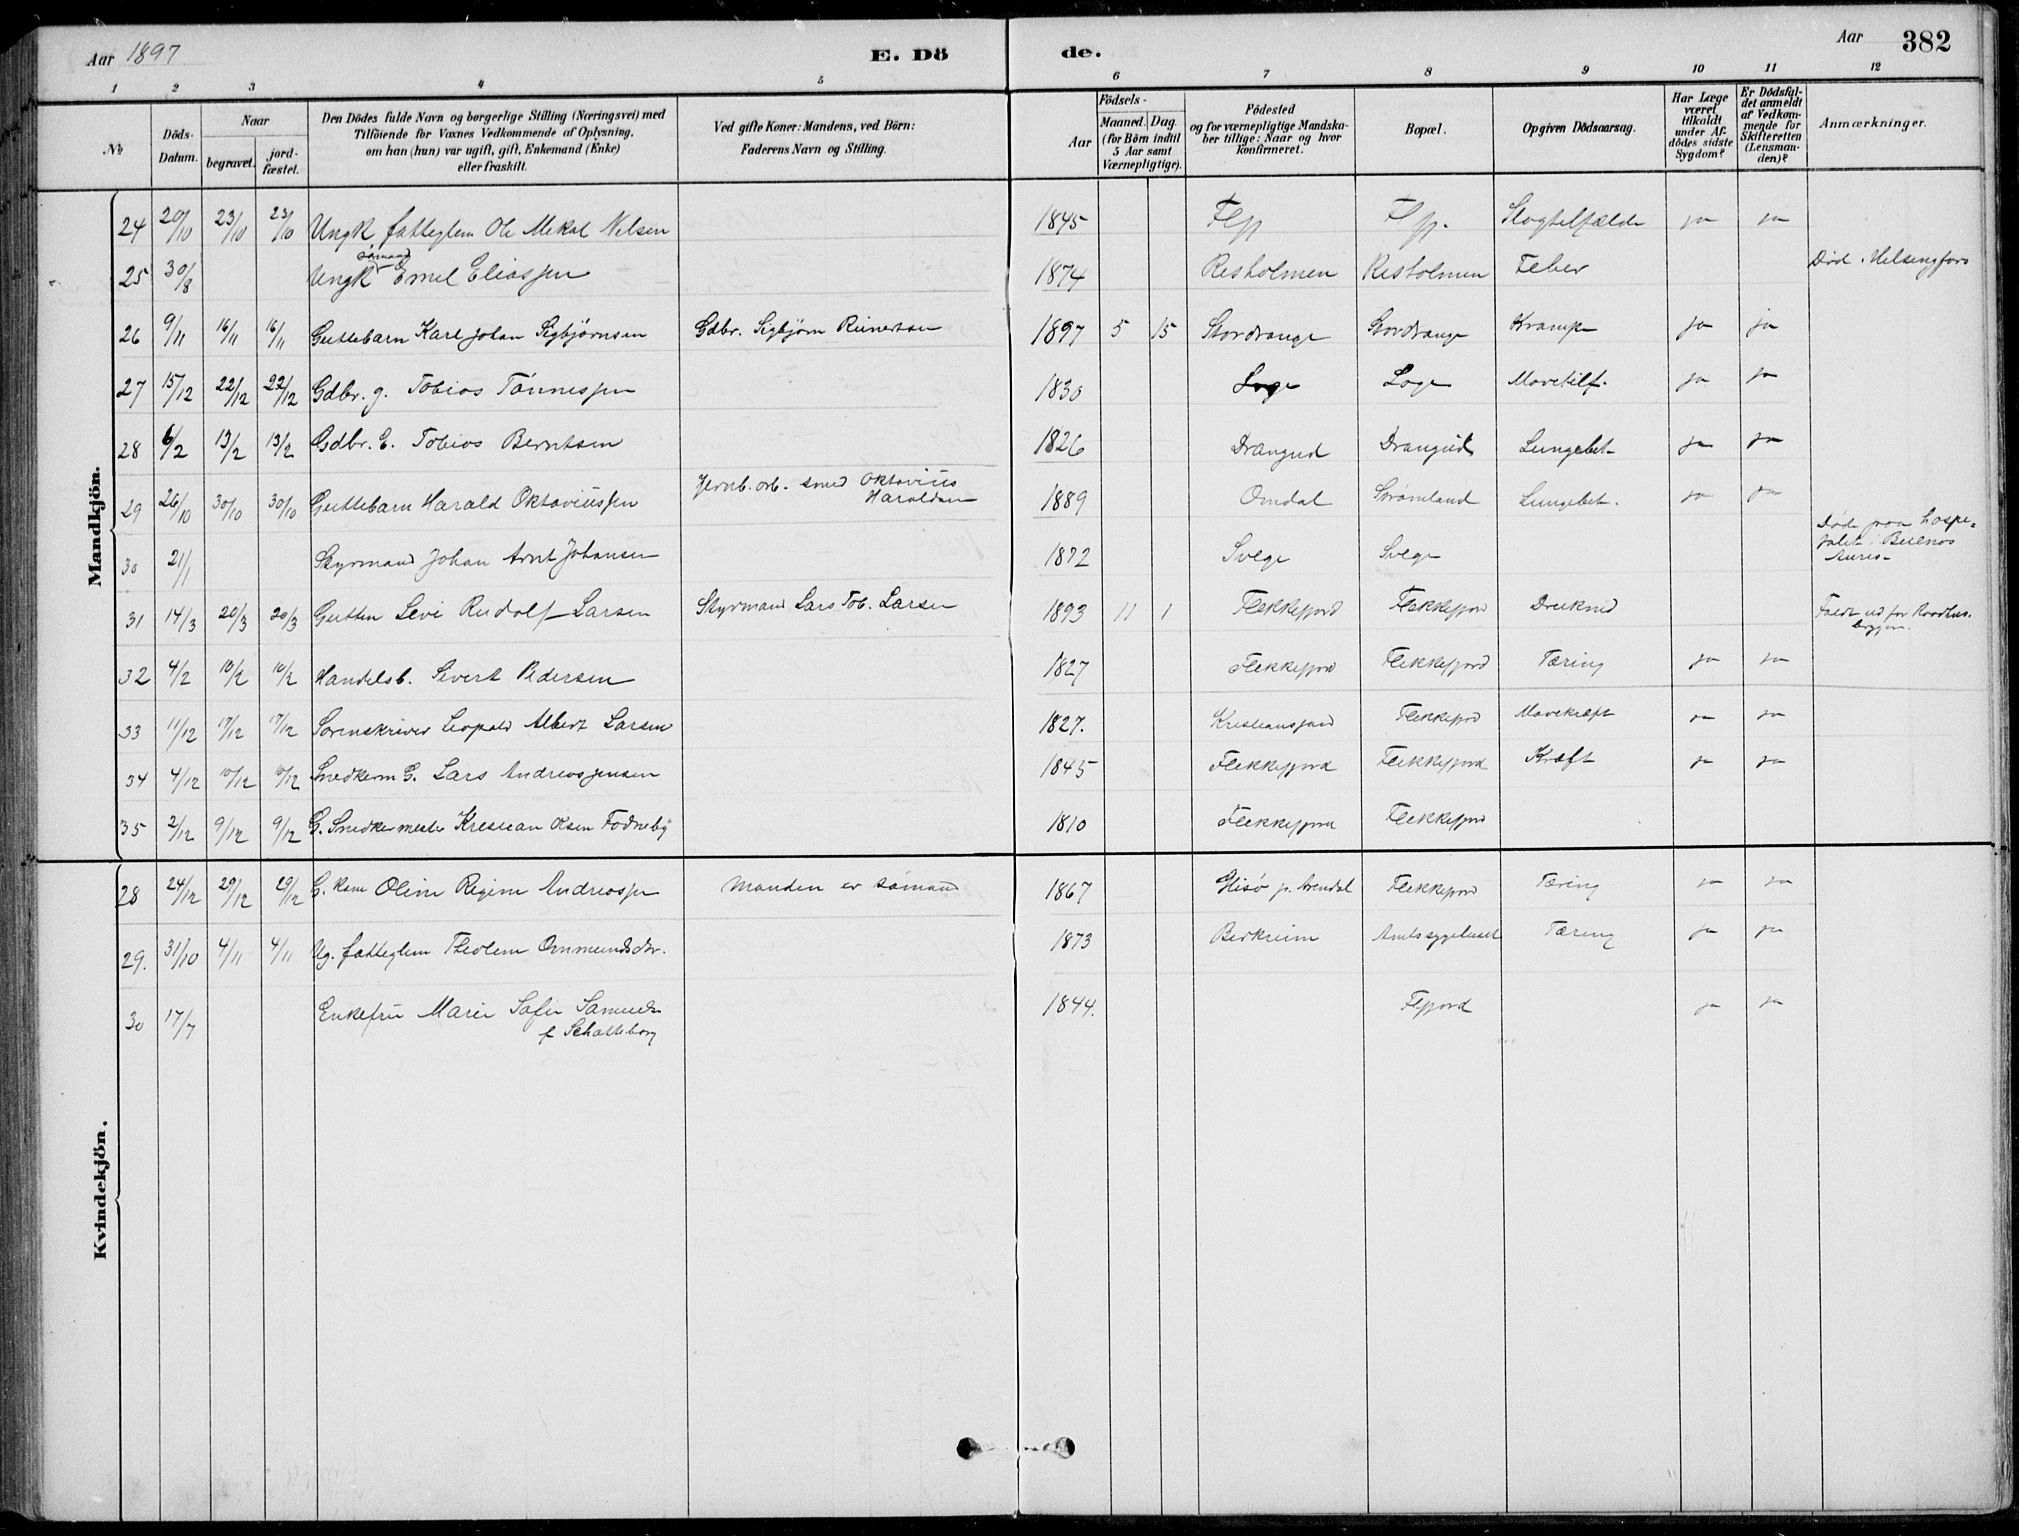 Aar 1897 E. Dö de. Aar 382
1 2 3 4 5 6 7 8 9 10 11 12
№ Döds-Datum. Naar begravet. jord-fæstet. Den Dödes fulde Navn og borgerlige Stilling (Næringsvei) med Tilföiende for Voxnes Vedkommende af Oplysning, om han (hun) var ugift, gift, Enkemand (Enke) eller fraskilt. Ved gifte Koner: Mandens, ved Börn: Faderens Navn og Stilling. Aar Födsels- Maaned. Dag. (for Börn indtil 5 Aar samt Værnepligtige). Födested og for værnepligtige Mandska-ber tillige: Naar og hvor konfirmeret. Bopæl. Opgiven Dödsaarsag. Har Læge været tilkaldt under Af-dödes sidste Sygdom? Er Dödsfal-det anmeldt af Vedkom-mende for Skifteretten (Lensman-den)? Anmærkninger.
Mandkjön.
24 20/10 23/10 23/10 Ungk fatteglem Ole Mekal Nelsen 1845 Flfj Flfj. Slagtilfælde ja ja
25 30/8 Ungk sømand Emel Eliassen 1874 Resholmen Resholmen Feber Død i Helsingfors
26 9/11 16/11 16/11 Guttebarn Karl Johan Sigbjørnsen Gdbr. Sigbjørn Reinertsen 1897 5 15 Stordrange Stordrange Krampe ja ja
27 15/12 22/12 22/12 Gdbr. g. Tobias Tønnessen 1830 Loge Loge Mavetilf. ja ja
28 6/2 13/2 13/2 Gdbr. E. Tobias Berntsen 1826 Drangeid Drangeid Lungebet. ja ja
29 26/10 30/10 30/10 Guttebarn Harald Oktaviussen Jernb. arb. smed Oktavius Haraldsen 1889 Omdal Strømland Lungebet. ja ja
30 21/1 Styrmand Johan Arnt Johansen 1872 Svege Svege Døde paa hospe-talet i Buenos Aures-
31 14/3 20/3 20/3 Gutten Levi Rudolf Larsen Styrmand Lars Tob. Larsen 1893 11 1 Flekkefjord Flekkefjord Druknet Faldt ud for Raadhus-bryggen.
32 4/2 10/2 10/2 Handelsb. Sivert Pedersen 1827 Flekkefjord Flekkefjord Tæring ja ja
33 11/12 17/12 17/12 Sorenskriver Leopold Albert Larsen 1827. Kristianssand Flekkefjord Mavekræft ja ja
34 4/12 10/12 10/12 Snedkerm G. Lars Andreas Jensen 1845 Flekkefjord Flekkefjord Kræft ja ja
35 2/12 9/12 9/12 G. Snedkermester Krestean Olsen Fodneby 1810 Flekkefjord Flekkefjord
Kvindekjön.
28 24/12 29/12 29/12 G. Kone Oline Regine Andreassen Manden er sømand 1867 Hisø p. Arendal Flekkefjord Tæring ja ja
29. 31/10 4/11 4/11 Ug. fatteglem Theolene Ommundsdtr. 1873 Birkreim Amtssygehuset Tæring ja ja
30 17/7 Enkefru Marie Sofie Samuels. f. Schatteborg 1844. Flfjord ja ja